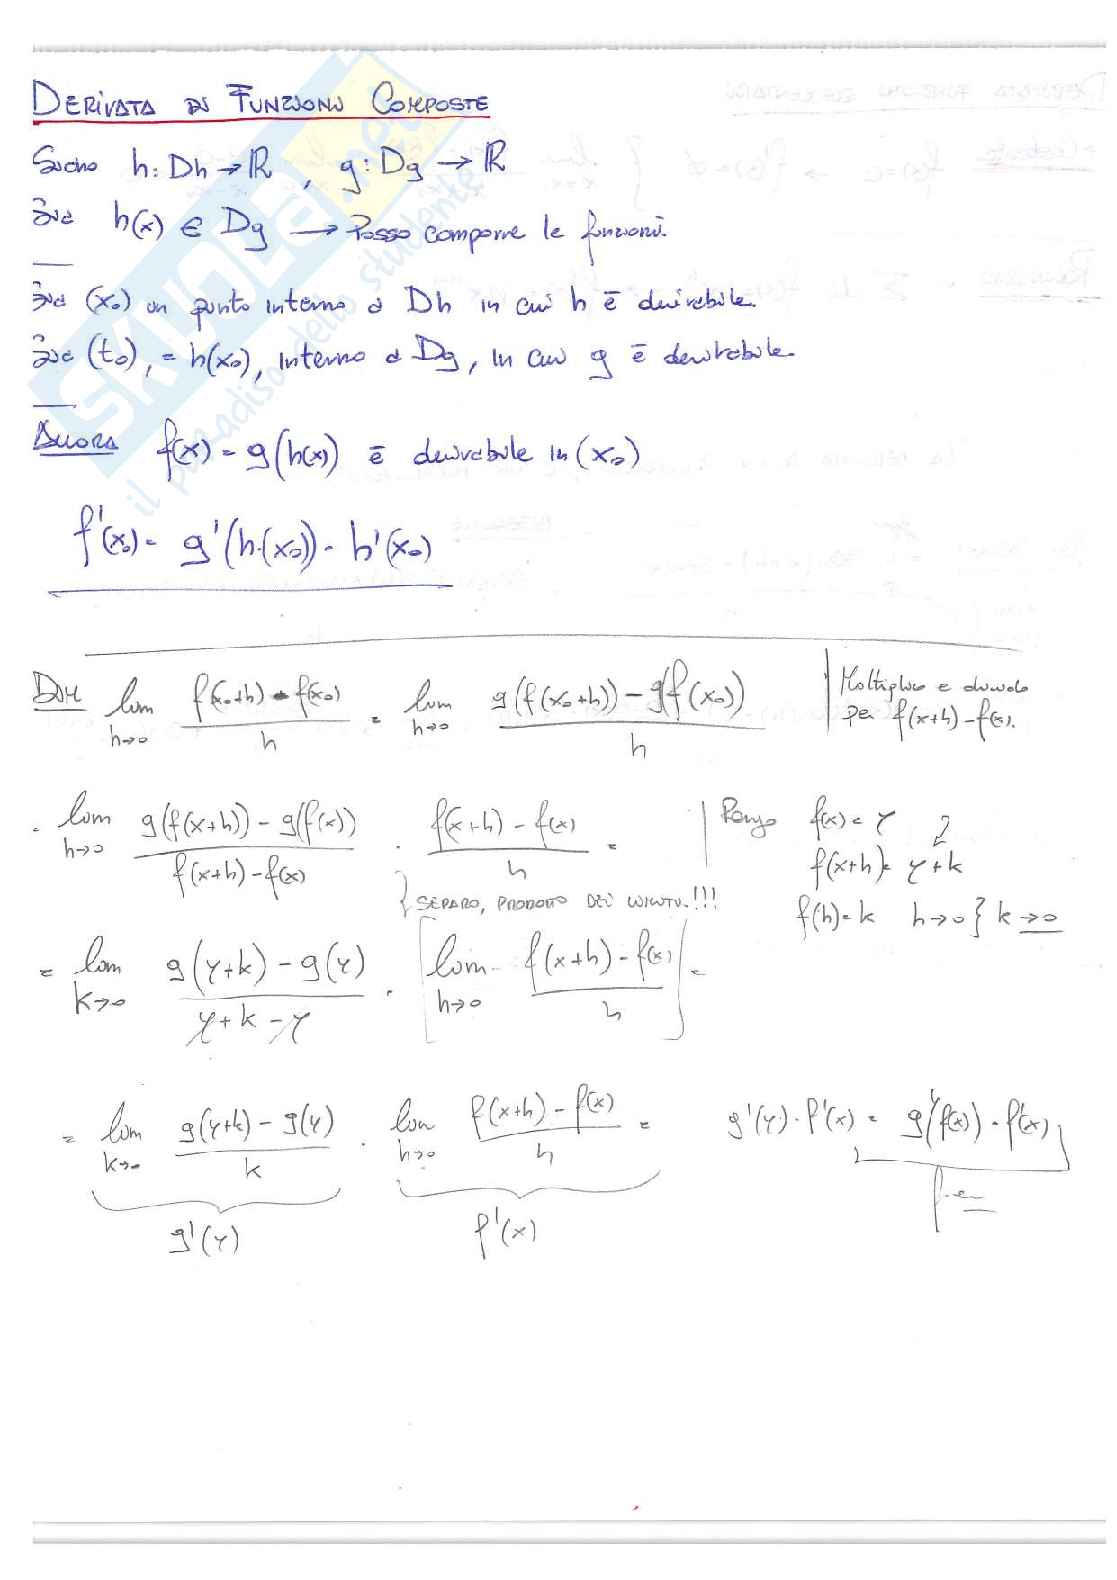 DERIVATA DI FUNZIONI COMPOSTE
Siano h: Dh → ℝ , g: Dg → ℝ
Sia h(x) ∈ Dg → Posso comporre le funzioni.
Sia (x₀) un punto interno a Dh in cui h è derivabile.
Sia (t₀), = h(x₀), interno a Dg, in cui g è derivabile.
ALLORA f(x) = g(h(x)) è derivabile in (x₀)
f'(x₀) = g'(h(x₀)) · h'(x₀)
DIM lim h→0 f(x₀+h) - f(x₀) / h = lim h→0 g(f(x₀+h)) - g(f(x₀)) / h | Moltiplico e divido
per f(x+h) - f(x).
· lim h→0 g(f(x+h)) - g(f(x)) / f(x+h) - f(x) · f(x+h) - f(x) / h = | Pongo f(x) = y
f(x+h) = y+k
} SEPARO, PRODOTTO DEI LIMITI.!!! f(h) = k h→0 } k→0
= lim k→0 g(y+k) - g(y) / y+k-y · [ lim h→0 f(x+h) - f(x) / h ] =
= lim k→0 g(y+k) - g(y) / k · lim h→0 f(x+h) - f(x) / h = g'(y) · f'(x) = g'(f(x)) · f'(x)
g'(y) f'(x)
SKUOLA.net
il paradiso dello studente